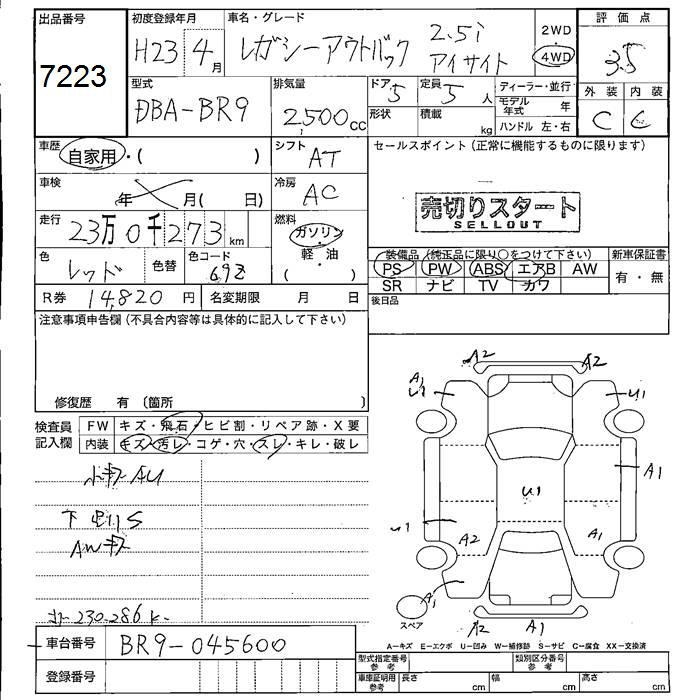 出品番号 初度登録年月 車名・グレード 2WD 評価点
7223 H23 4月 レガシーアウトバック 2.5i アイサイト 4WD 3.5
型式 排気量 ドア 5 定員 5人 ディーラー・並行 外装 内装
DBA-BR9 2,500cc 形状 積載 kg モデル年式 年 C C
ハンドル 左・右
車歴 自家用・( ) シフト AT セールスポイント (正常に機能するものに限ります)
車検 年 月( 日) 冷房 AC 売切りスタート
SELLOUT
走行 23万0千273km 燃料 ガソリン・軽・油 ( )
色 レッド 色替 色コード 69Z 装備品 (純正品に限り○をつけて下さい) 新車保証書
PS PW ABS エアB AW 有・無
SR ナビ TV カワ
R券 14,820円 名変期限 月 日 後日品
注意事項申告欄 (不具合内容等は具体的に記入して下さい)
修復歴 有 〔箇所 〕
検査員記入欄 FW キズ・飛石・ヒビ割・リペア跡・X要
内装 キズ・汚レ・コゲ・穴・スレ・キレ・破レ
A2 A2
A1 U1 U1
A1
U1
U1 A2 A1
A1
A2 A1
スペア
230.286k
A－キズ E－エクボ U－凹み W－補修跡 S－サビ C－腐食 XX－交換済
車台番号 BR9-045600 型式指定番号 参考 類別区分番号 参考
登録番号 車庫証明用 参考 長さ cm 幅 cm 高さ cm